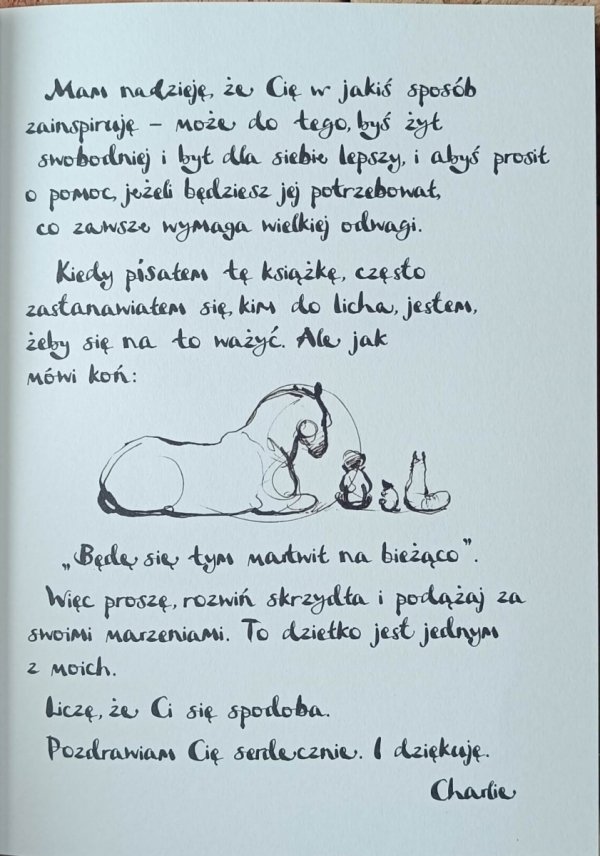 Mam nadzieję, że Cię w jakiś sposób
zainspiruję – może do tego, byś żył
swobodniej i był dla siebie lepszy, i abyś prosił
o pomoc, jeżeli będziesz jej potrzebował,
co zawsze wymaga wielkiej odwagi.
Kiedy pisałem tę książkę, często
zastanawiałem się, kim do licha, jestem,
żeby się na to ważyć. Ale jak
mówi koń:
„Będę się tym martwił na bieżąco”.
Więc proszę, rozwiń skrzydła i podążaj za
swoimi marzeniami. To dziełko jest jednym
z moich.
Liczę, że Ci się spodoba.
Pozdrawiam Cię serdecznie. I dziękuję.
Charlie